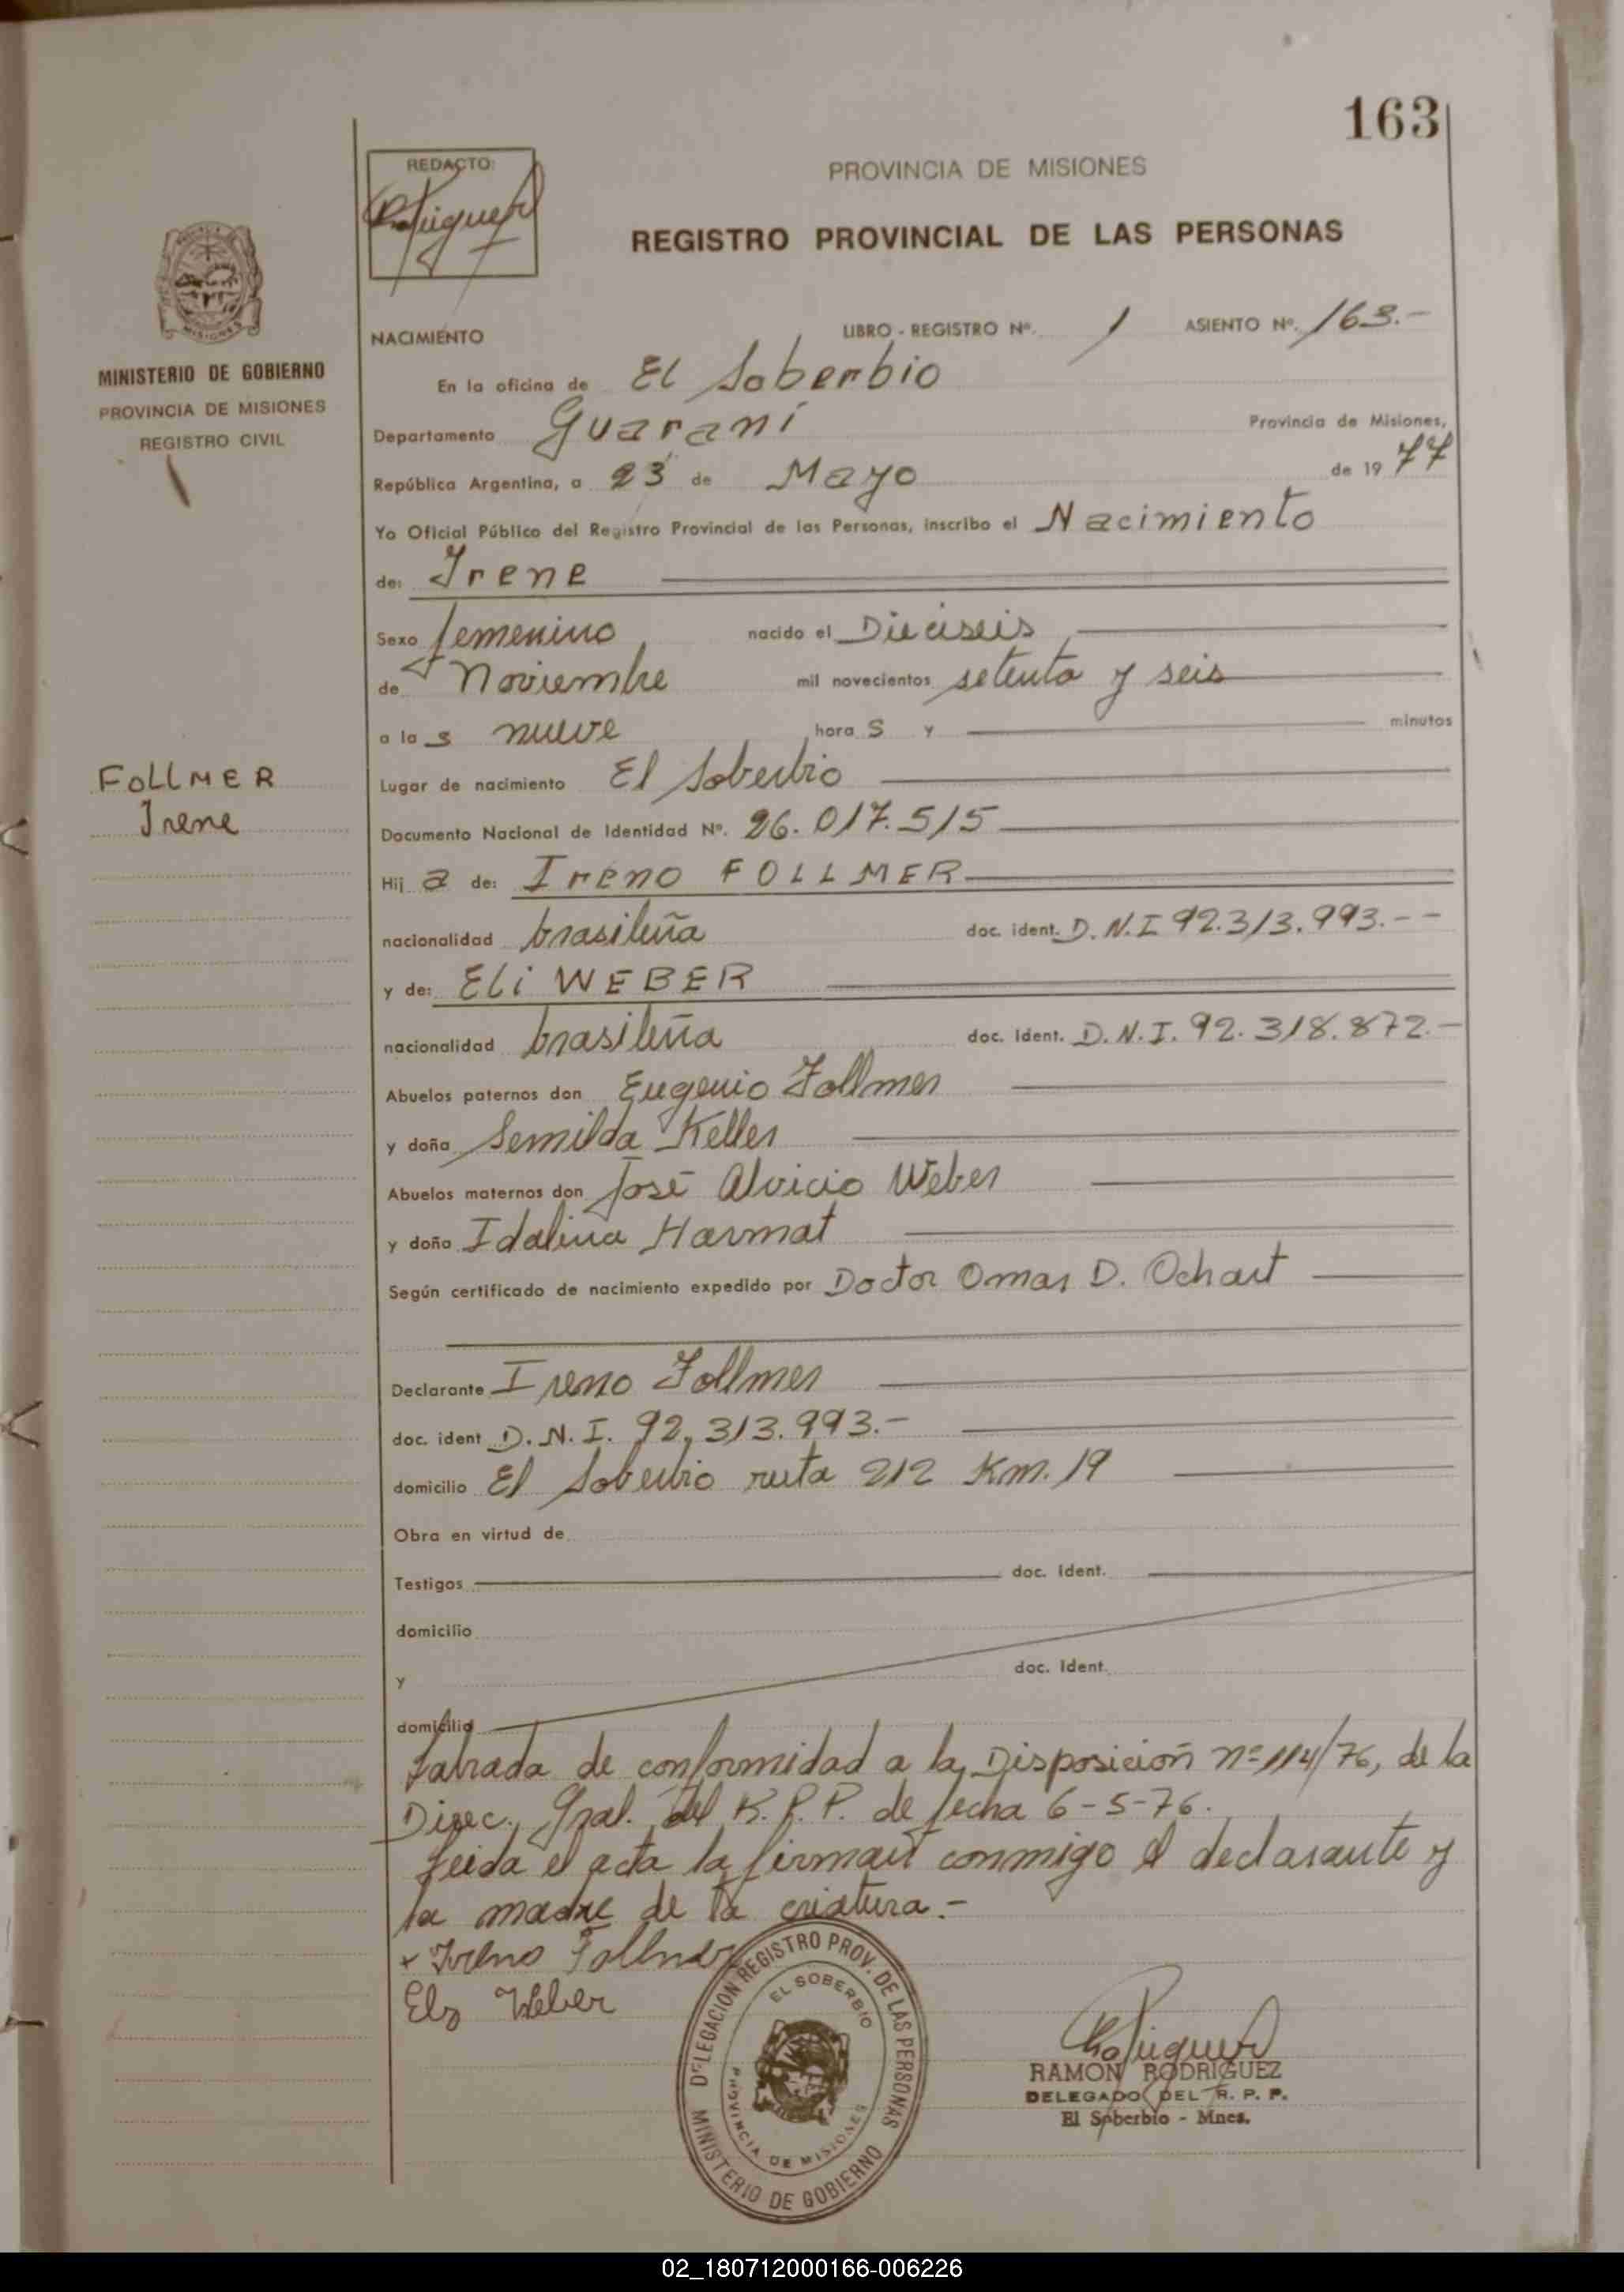 163
REDACTO:
PROVINCIA DE MISIONES
REGISTRO PROVINCIAL DE LAS PERSONAS
MISIONES
MINISTERIO DE GOBIERNO
PROVINCIA DE MISIONES
REGISTRO CIVIL
NACIMIENTO LIBRO - REGISTRO Nº. 1 ASIENTO Nº. 163.-
En la oficina de El Soberbio
Departamento Guaraní Provincia de Misiones,
República Argentina, a 23 de Mayo de 19 77
Yo Oficial Público del Registro Provincial de las Personas, inscribo el Nacimiento
de: Irene
Sexo femenino nacido el Dieciseis
de Noviembre mil novecientos setenta y seis
a la s nueve hora s y minutos
FOLLMER
Irene
Lugar de nacimiento El Soberbio
Documento Nacional de Identidad Nº. 26.017.515
Hij a de: Ireno FOLLMER
nacionalidad brasileña doc. ident. D.N.I 92.313.993.--
y de: Eli WEBER
nacionalidad brasileña doc. Ident. D.N.I. 92.318.872.-
Abuelos paternos don Eugenio Follmer
y doña Semilda Keller
Abuelos maternos don José Alvicio Weber
y doña Idalina Harmat
Según certificado de nacimiento expedido por Doctor Omar D. Ochart
Declarante Ireno Follmer
doc. ident D.N.I. 92.313.993.-
domicilio El Soberbio ruta 212 Km. 19
Obra en virtud de
Testigos doc. Ident.
domicilio
y doc. Ident.
domicilio
Labrada de conformidad a la Disposición nº 114/76, de la
Direc. Gral. del R.P.P. de fecha 6-5-76.
Leida el acta la firman conmigo el declarante y
la madre de la criatura.-
+ Ireno Follmer
Weber
DELEGACION REGISTRO PROV. DE LAS PERSONAS
EL SOBERBIO
PROVINCIA DE MISIONES
MINISTERIO DE GOBIERNO
RAMON RODRIGUEZ
DELEGADO DEL R. P. P.
El Soberbio - Mnes.
02_180712000166-006226